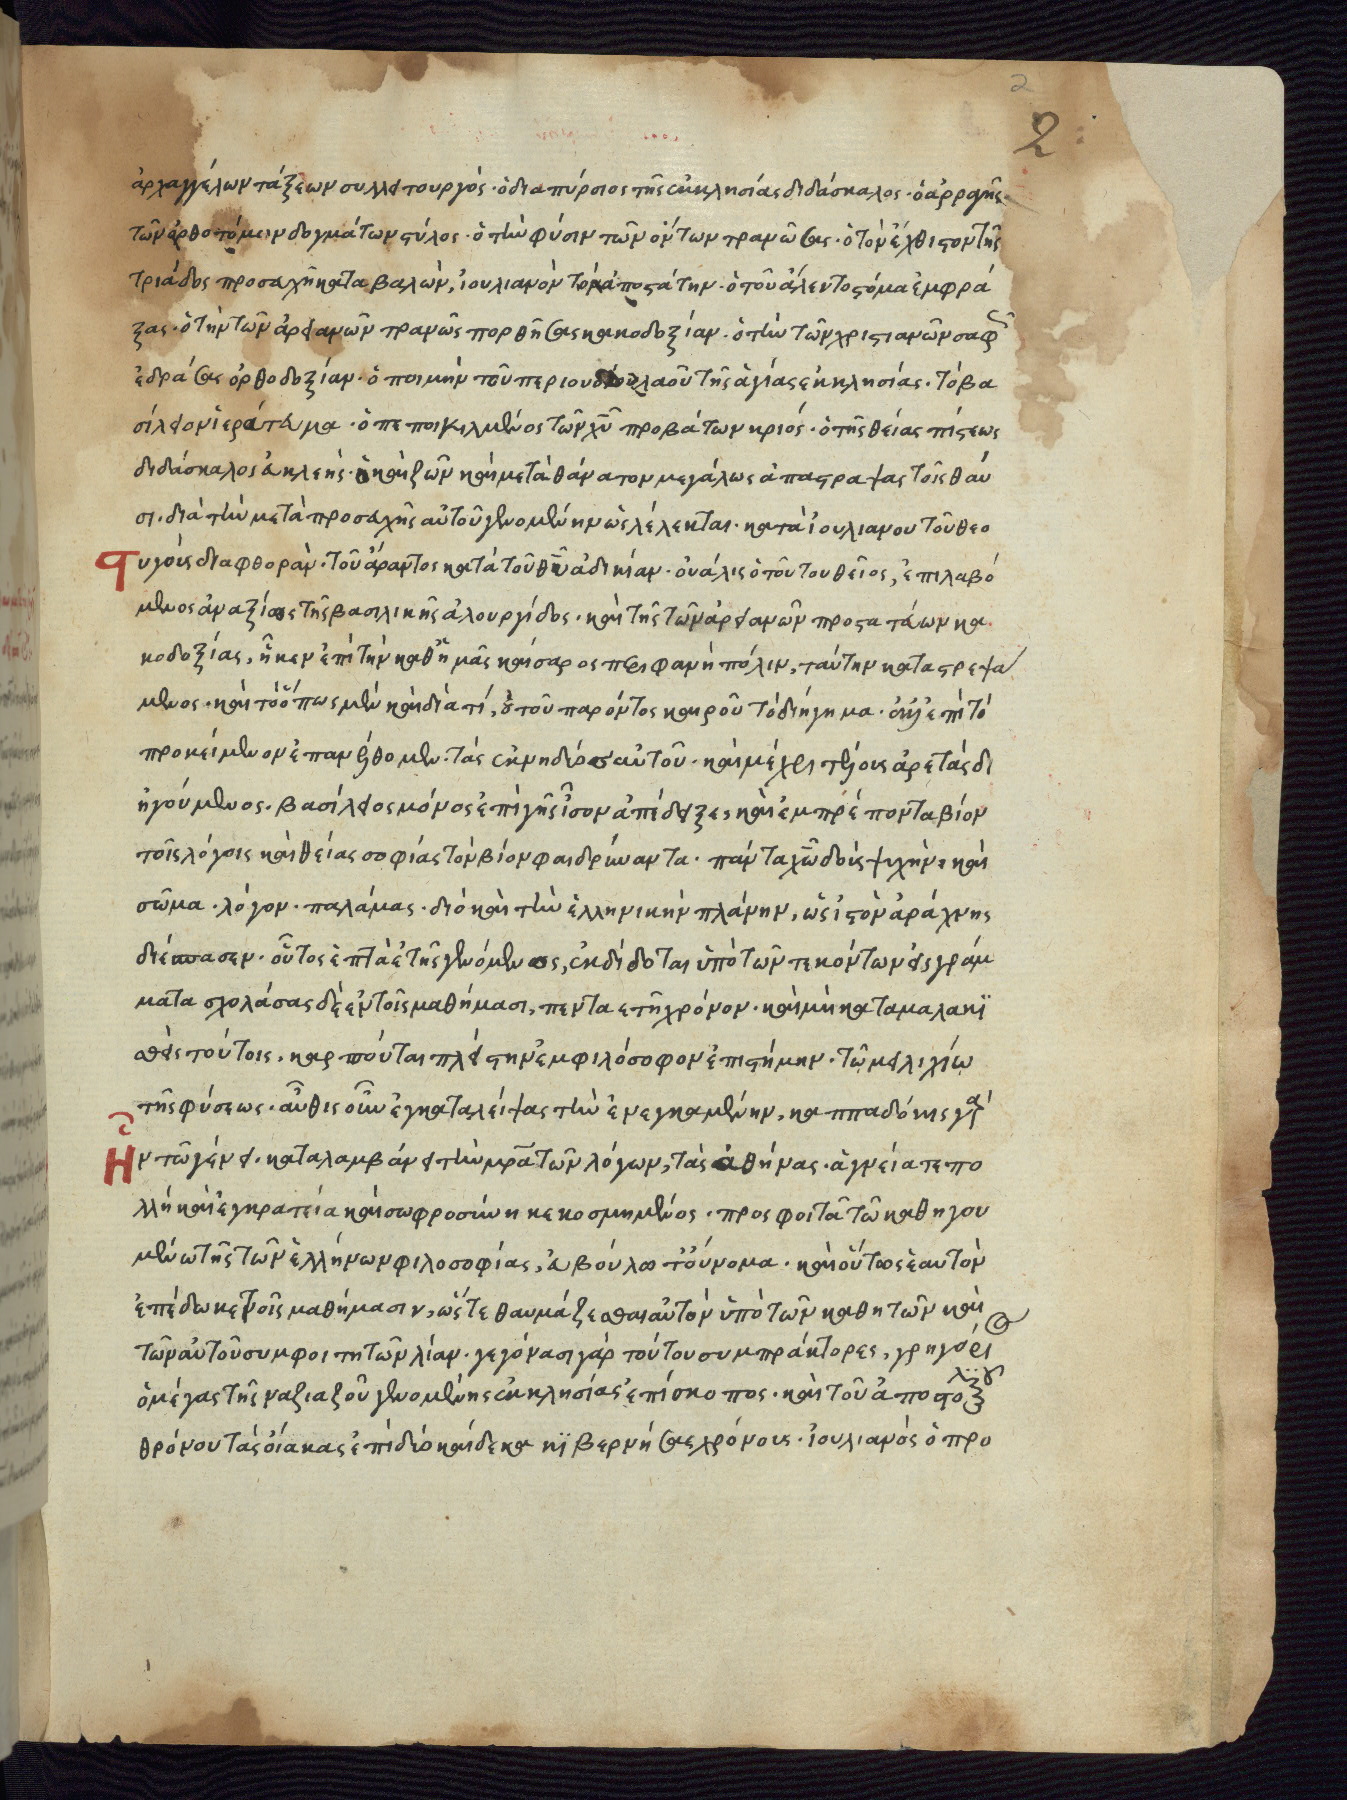 2
2
ἀρχαγγέλων τάξεων συλλειτουργός · ὁ διαπύρσιος τῆς ἐκκλησίας διδάσκαλος · ὁ ἀρραγὴς
τῶν ὀρθοτόμων δογμάτων στύλος · ὁ τὴν φύσιν τῶν ὄντων τρανώσας · ὁ τὸν ἔχθιστον τῆς
τριάδος προσευχῆ καταβαλὼν, ἰουλιανὸν τὸν ἀποστάτην · ὁ τοῦ ἀλεντος στόμα ἐμφρά
ξας · ὁ τὴν τῶν ἀρειανῶν τρανῶς πορθήσας κακοδοξίαν · ὁ τὴν τῶν χριστιανῶν σαφῶς
ἑδράσας ὀρθοδοξίαν · ὁ ποιμὴν τοῦ περιουσίου λαοῦ τῆς ἁγίας ἐκκλησίας · τὸ βα
σίλειον ἱεράτευμα · ὁ πεποικιλμένος τῶν χῦ προβάτων κριός · ὁ τῆς θείας πίστεως
διδάσκαλος εὐκλεής · ὁ καὶ ζῶν καὶ μετὰ θάνατον μεγάλως ἀπαστράψας τοῖς θαύ
σι · διὰ τὴν μετὰ προσευχῆς αὐτοῦ γενομένην ὡς λέλεκται · κατὰ ἰουλιανου τοῦ θεο
στυγοῦς διαφθορὰν · τοῦ ἄραντος κατὰ τοῦ θῦ ἀδικίαν · οὐάλις ὁ τούτου θεῖος, ἐπιλαβό
μενος ἀναξίως τῆς βασιλικῆς ἁλουργίδος · καὶ τῆς τῶν ἀρειανῶν προστατεύων κα
κοδοξίας, ἧκεν ἐπὶ τὴν καθ' ἡμᾶς καίσαρος περιφανῆ πόλιν, ταύτην καταστρεψά
μενος · καὶ τὸ ὅπως μὲν καὶ διὰ τί, οὐ τοῦ παρόντος καιροῦ τὸ διήγημα · ἐπὶ τὸ
προκείμενον ἐπανέλθομεν · τὰς ἐκ νηδύος αὐτοῦ · καὶ μέχρι τέλους ἀρετὰς δι
ηγούμενος · βασίλειος μόνος ἐπὶ γῆς ἶσον ἀπέδειξε, καὶ ἐμπρέποντα βίον
τοῖς λόγοις καὶ θείας σοφίας τὸν βίον φαιδρύναντα · πάντα χῶ δοὺς ψυχὴν, καὶ
σῶμα · λόγον · παλάμας · διὸ καὶ τὴν ἑλληνικὴν πλάνην, ὡς ἱστὸν ἀράχνης
διέσπασεν · οὗτος ἑπταέτης γενόμενος, ἐκδίδοται ὑπὸ τῶν τεκόντων εἰς γράμ
ματα σχολάσας δὲ ἐν τοῖς μαθήμασι, πενταετῆ χρόνον · καὶ μὴ καταμαλακϊ
σθεὶς τούτοις, καρποῦται πλείστην ἐμφιλόσοφον ἐπιστήμην · τῶ μειλιχίω
τῆς φύσεως · αὖθις οὖν ἐγκαταλείψας τὴν ἐνεγκαμένην, καππαδόκης γὰρ
ἦν τῶ γένει · καταλαμβάνει τὴν μρᾶ τῶν λόγων, τὰς ἀθήνας · ἁγνεία τε πο
λλῆ καὶ ἐγκρατεία καὶ σωφροσύνη κεκοσμημένος · προσφοιτᾶ τῶ καθηγου
μένω τῆς τῶν ἑλλήνων φιλοσοφίας, εὐβούλω τοὔνομα · καὶ οὕτως ἑαυτὸν
ἐπέδωκε τοῖς μαθήμασιν, ὥστε θαυμάζεσθαι αὐτὸν ὑπὸ τῶν καθητῶν καὶ
τῶν αὐτοῦ συμφοιτητῶν λίαν · γεγόνασι γάρ τούτου συμπράκτορες, γρηγόριος
ὁ μέγας τῆς ναζιαζοῦ γενομένης ἐκκλησίας ἐπίσκοπος · καὶ τοῦ ἀποστολϊκοῦ
θρόνου τὰς οἴακας ἐπὶ δυὸ καίδεκα κϊβερνήσας χρόνους · ἰουλιανός ὁ προ